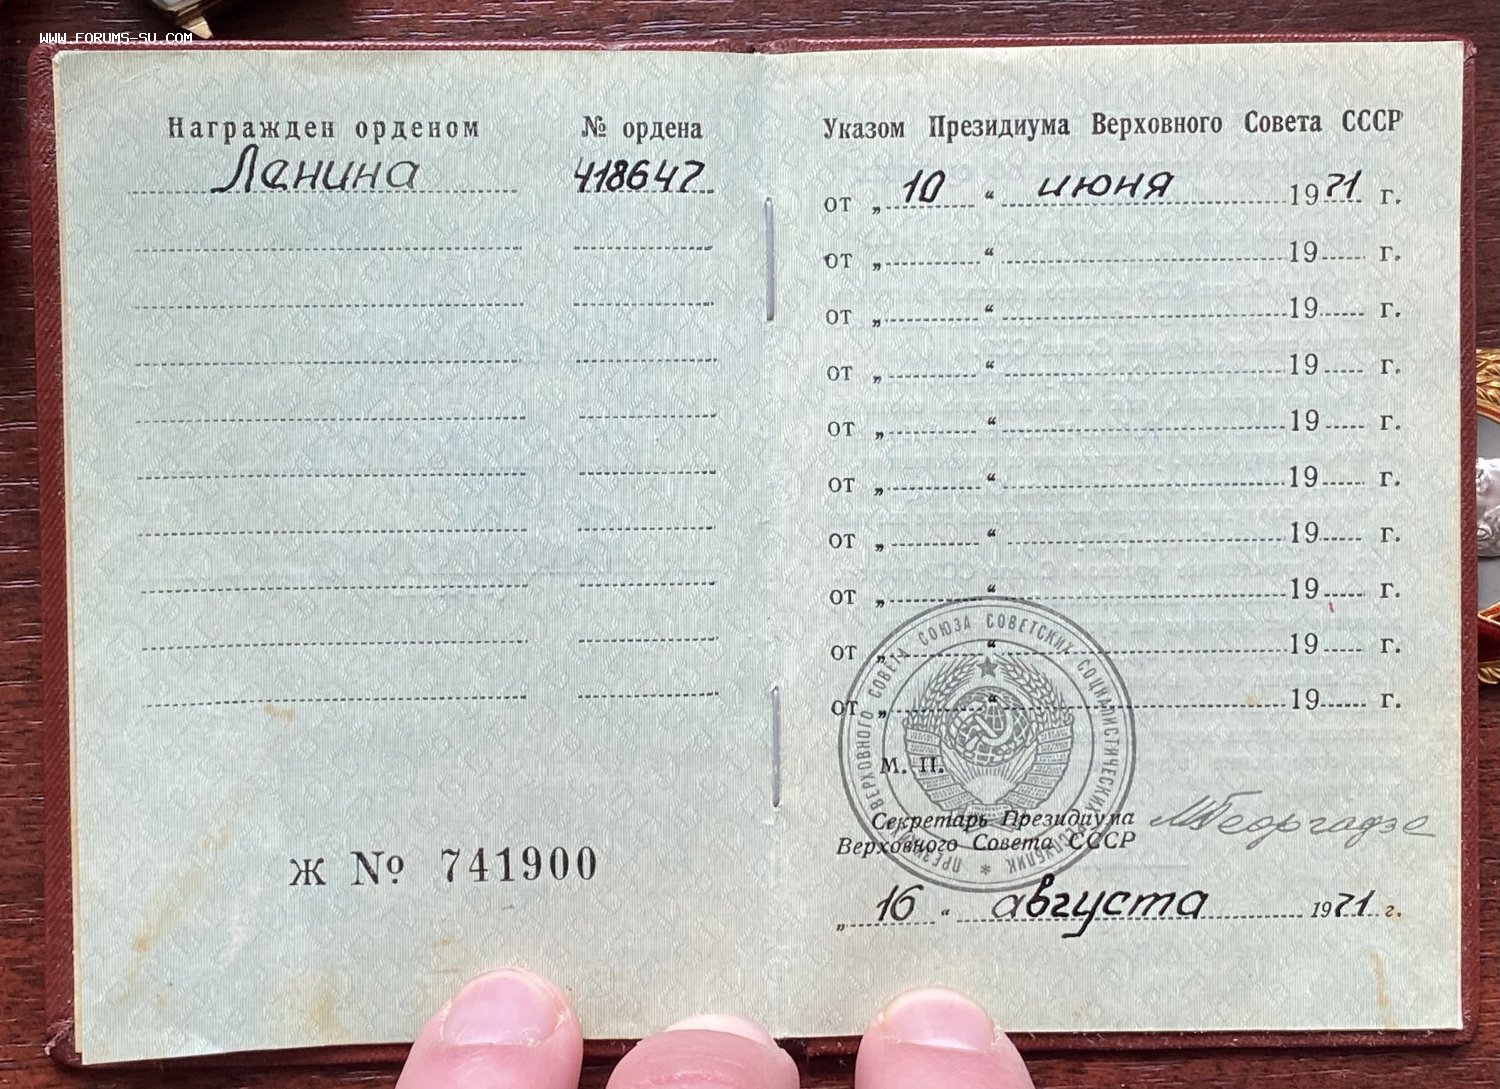 WWW.FORUMS-SU.COM
Награжден орденом № ордена
Ленина 418647
Ж № 741900
Указом Президиума Верховного Совета СССР
от „ 10 “ июня 1971 г.
от „ “ 19 г.
от „ “ 19 г.
от „ “ 19 г.
от „ “ 19 г.
от „ “ 19 г.
от „ “ 19 г.
от „ “ 19 г.
от „ “ 19 г.
от „ “ 19 г.
ПРЕЗИДИУМ ВЕРХОВНОГО СОВЕТА СОЮЗА СОВЕТСКИХ СОЦИАЛИСТИЧЕСКИХ РЕСПУБЛИК *
М. П.
Секретарь Президиума
Верховного Совета СССР
МГеоргадзе
„ 16 “ августа 1971 г.